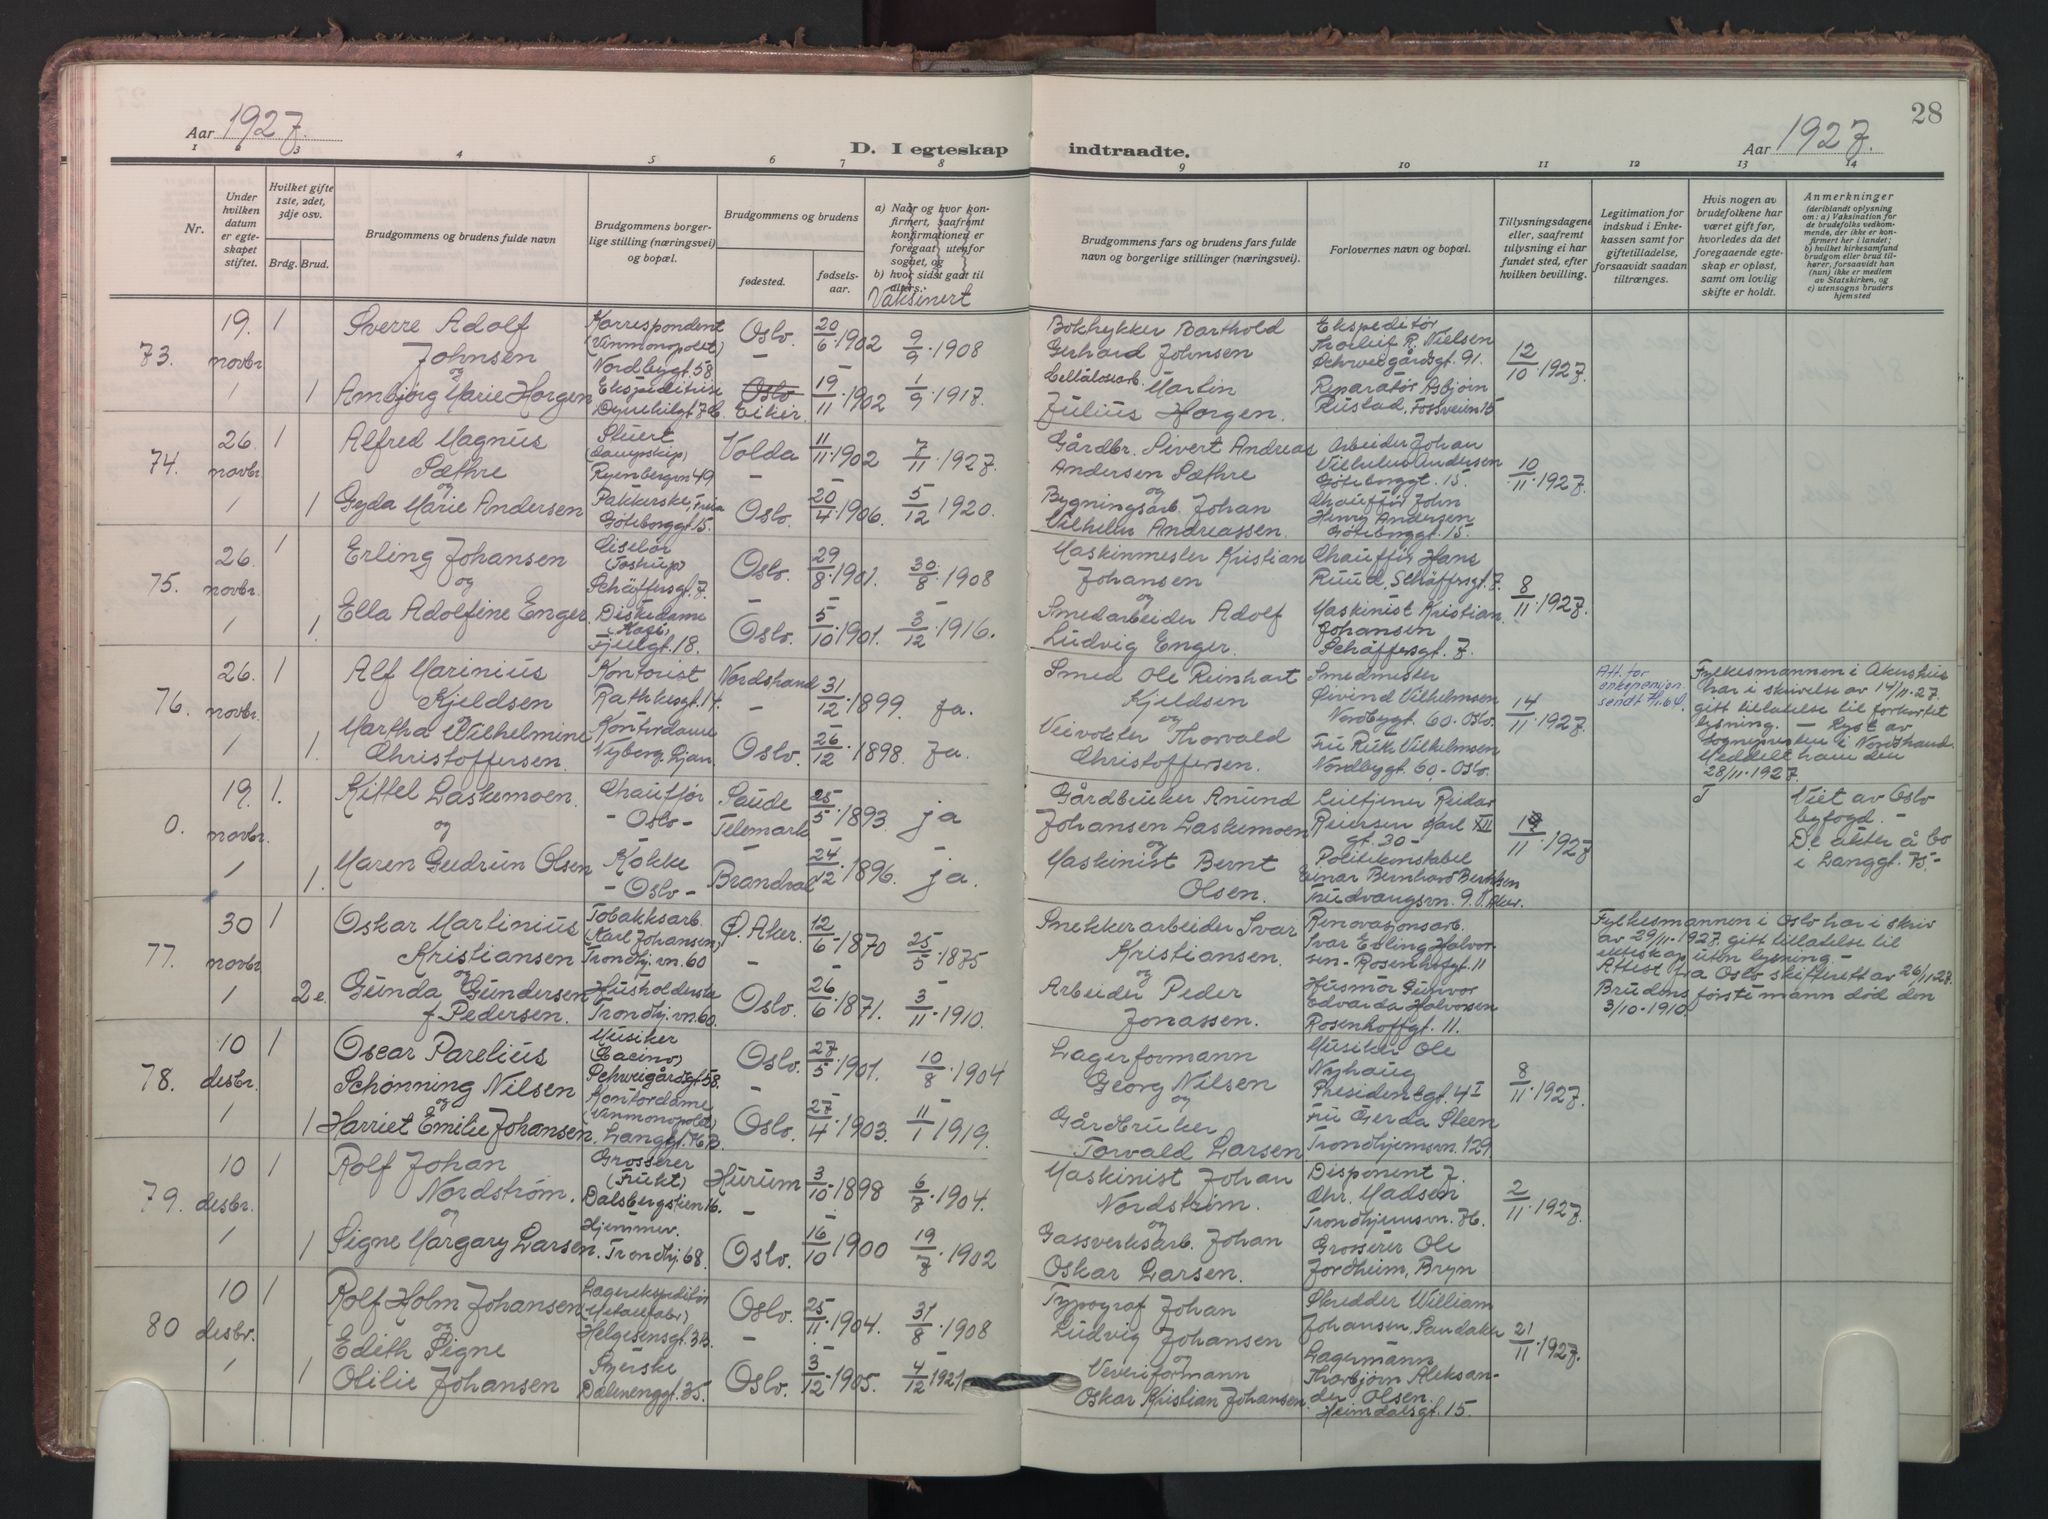 28
Aar 1927.
D. I egteskap indtraadte.
Aar 1927.
1 2 3 4 5 6 7 8 9 10 11 12 13 14
Nr.
Under hvilken datum er egteskapet stiftet.
Hvilket gifte 1ste, 2det, 3dje osv.
Brdg. Brud.
Brudgommens og brudens fulde navn
Brudgommens borgerlige stilling (næringsvei) og bopæl.
Brudgommens og brudens
fødested.
fødselsaar.
a) Naar og hvor konfirmert, saafremt konfirmationen er foregaat utenfor sognet, og
b) hvor sidst gaat til alters.
Vaksinert
Brudgommens fars og brudens fars fulde navn og borgerlige stillinger (næringsvei).
Forlovernes navn og bopæl.
Tillysningsdagene eller, saafremt tillysning ei har fundet sted, efter hvilken bevilling.
Legitimation for indskud i Enkekassen samt for giftetilladelse, forsaavidt saadan tiltrænges.
Hvis nogen av brudefolkene har været gift før, hvorledes da det foregaaende egteskap er opløst, samt om lovlig skifte er holdt.
Anmerkninger
(deriblandt oplysning om: a) Vaksination for de brudefolks vedkommende, der ikke er konfirmert her i landet; b) hvilket kirkesamfund brudgom eller brud tilhører, forsaavidt han (hun) ikke er medlem av Statskirken, og c) utensogns bruders hjemsted
73. 19. novbr. 1
Sverre Adolf Johnsen
Korrespondent (Vinmonopolet) Nordbygt. 58
Oslo. 20/6 1902 9/9 1908
Boktrykker Barthold Gerhard Johnsen
Ekspeditør Thorleif R. Nielsen Schweigårdsgt. 91.
12/10 1927.
og
1 1 Ambjørg Marie Horgen
Ekspeditrise
Oslo Eiker 19/11 1902 1/9 1917.
Cellulosearb. Martin Julius Horgen.
Reparatør Asbjørn Rustad, Fossveien 15
74. 26. novbr. 1
Alfred Magnus Sæthre
Stuert (Dampskip) Ryenbergvn 49
Volda 11/11 1902 7/11 1927.
Gårdbr. Sivert Andreas Andersen Sæthre
Arbeider Johan Vilhelm Andersen Göteborggt. 15.
10/11 1927.
og
1 1 Gyda Marie Andersen
Pakkerske, Freia Göteborggt. 15.
Oslo. 20/4 1906. 5/12 1920.
og
Bygningsarb. Johan Vilhelm Andreassen.
Chauffør John Henry Andersen Göteborggt. 15
75. 26. novbr. 1
Erling Johansen
Ciselør (Tostrup) Schäffersgt. 7.
Oslo. 29/8 1901. 30/8 1908
Maskinmester Kristian Johansen
Chauffør Hans Ruud, Schäffersgt. 7.
8/11 1927.
og
1 1. Ella Adolfine Enger
Diskedame Fjellgt. 18.
Oslo. 5/10 1901. 3/12 1916.
og
Smedarbeider Adolf Ludvig Enger.
Maskinist Kristian Johansen Schäffersgt. 7.
76. 26. novbr. 1
Alf Marinius Kjeldsen
Kontorist Rathkesgt. 14.
Nordstrand 31/12 1899. ja.
Smed Ole Reinhart Kjeldsen
Smedmester Øivind Vilhelmsen Nordbygt. 60. Oslo.
14/11 1927.
Att. for enkepensjon sendt
Fylkesmannen i Akershus har i skrivelse av 14/11-27. gitt tillatelse til forkortet lysning. — Lyst av sognepresten i Nordstrand. Meddelt ham den 28/11-1927.
og
1 1. Martha Vilhelmine Christoffersen.
Kontordame Nyborg, Ljan.
Oslo. 26/12 1898. Ja.
og
Veivokter Thorvald Christoffersen.
Fru Ruth Vilhelmsen Nordbygt. 60. - Oslo.
0. 19. novbr. 1.
Kittel Laskemoen.
Chauffør - Oslo -
Saude Telemark 25/5 1893 ja
Gårdbruker Anund Johansen Laskemoen
Reidar Reiersen Karl XII gt. 30 -
11 1927
Viet av Oslo byfogd. -
De akter å bo i Langgt. 75 -
og
1 1. Maren Gudrun Olsen
Kokke - Oslo -
Brandval 24/12 1896. ja.
og
Maskinist Bernt Olsen.
Politikonstabel Einar Bernhard Berntsen Frudvangsvn. 9. V. Aker.
77. 30 novbr 1
Oskar Martinius Kristiansen
Tobakksarb. (Karl Johansen) Trondhj. vn. 60
Ø. Aker. 12/6 1870 25/5 1875
Snekkerarbeider Svar Kristiansen.
Renovasjonsarb. Svar Erling Halvorsen - Rosenhofgt. 11
Fylkesmannen i Oslo har i skriv av 29/11-1927. gitt tillatelse til ekteskap uten lysning. -
Attest fra Oslo skifterett av 26/11 27.
Brudens første mann død den 3/10-1910.
og
1 2e. Gunda Gundersen f. Pedersen.
Husholderske Trondhj. vn. 60.
Oslo. 26/6 1871. 3/11 1910.
og
Arbeider Peder Jonassen.
Husmor Gunvor Edvarda Halvorsen Rosenhoffgt. 11.
78. 10 desbr. 1
Oscar Parelius Schønning Nilsen
Musiker (Casino) Schweigårdsgt 58.
Oslo. 27/5 1901. 10/8 1904
Lagerformann Georg Nilsen
Musiker Ole Nyhaug Presidentgt. 4 I
8/11 1927.
og
1 1 Harriet Emilie Johansen.
Kontordame (Vinmonopolet) Langgt.
Oslo. 27/4 1903. 11/1 1919.
og
Gårdbruker Torvald Larsen
Fru Gerda Steen Trondhjemsvn. 129.
79. 10 desbr. 1
Rolf Johan Nordstrøm.
Grosserer (Frukt) Dalsbergstien 16.
Hurum 3/10 1898 6/7 1904.
Maskinist Johan Nordstrøm.
Disponent J. Chr. Madsen Trondhjemsvn. 76.
2/11 1927.
og
1 1 Signe Margary Larsen.
Hjemmev. Trondhj. 68.
Oslo. 16/10 1900 19/7 1902
og
Gassverksarb. Johan Oskar Larsen.
Grosserer Ole Jordheim, Bryn
80 10 desbr. 1
Rolf Holm Johansen
Lagerekspeditør (Metallfabr.) Helgesensgt. 3B.
Oslo. 25/11 1904. 31/8 1908
Typograf Johan Ludvig Johansen
Skredder William Johansen, Sandaker
21/11 1927.
og
1 1 Edith Signe Otilie Johansen
Syerske Dælenenggt. 35.
Oslo. 3/12 1905. 4/12 1921
og
Veveriformann Oskar Kristian Johansen
Lagermann Thorbjørn Aleksander Olsen. Heimdalsgt. 15.